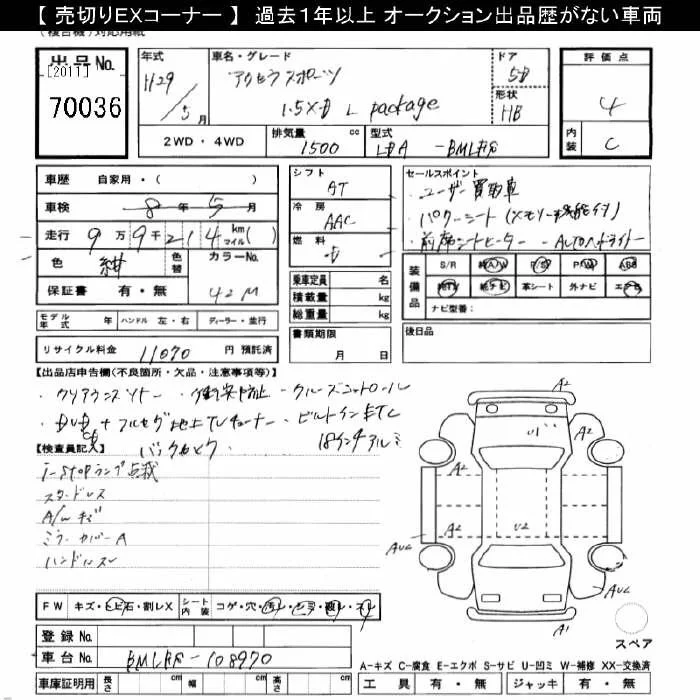 【 売切りEXコーナー 】 過去1年以上 オークション出品歴がない車両
出品No.
[2011]
70036
年式 H29 / 5月
車名・グレード アクセラスポーツ
1.5XD L package
ドア 5D
形状 HB
評価点 4
内装 C
2WD・4WD
排気量 1500 cc
型式 LDA -BMLFS
車歴 自家用・( )
車検 8年 5月
走行 9万9千214 km マイル( )
色 紺
色替
カラーNo. 42M
保証書 有・無
シフト AT
冷房 AAC
燃料 D
乗車定員 名
積載量 kg
総重量 kg
書類期限
月 日
セールスポイント
・ユーザー買取車
・パワーシート(メモリー機能付)
・前席シートヒーター ・AUTOハイライト
装備品
S/R 純A/W P/S P/W ABS
純TV 純ナビ 革シート 外ナビ エアB
ナビ型番:
後日品
モデル年式 年 ハンドル 左・右 ディーラー・並行
リサイクル料金 11070 円 預託済
【出品店申告欄(不良箇所・欠品・注意事項等)】
・クリアランスソナー ・衝突防止 ・クルーズコントロール
・DVD CD + フルセグ地上TVチューナー ・ビルトインETC
バックカメラ 18インチアルミ
【検査員記入】
i-stopランプ点滅
スタッドレス
A/Wキズ
ミラーカバーA
ハンドルスレ
A2
A2
A2
A2
A2
U2
AU2
AU2
A1
スペア
FW キズ・トビ石・割レX
シート内装 コゲ・穴・汚レ・シミ・破レ・スレ
登録No.
車台No. BMLFS-108970
車庫証明用 長さ cm 幅 cm 高さ cm
A-キズ C-腐食 E-エクボ S-サビ U-凹ミ W-補修 XX-交換済
工具 有・無 ジャッキ 有・無